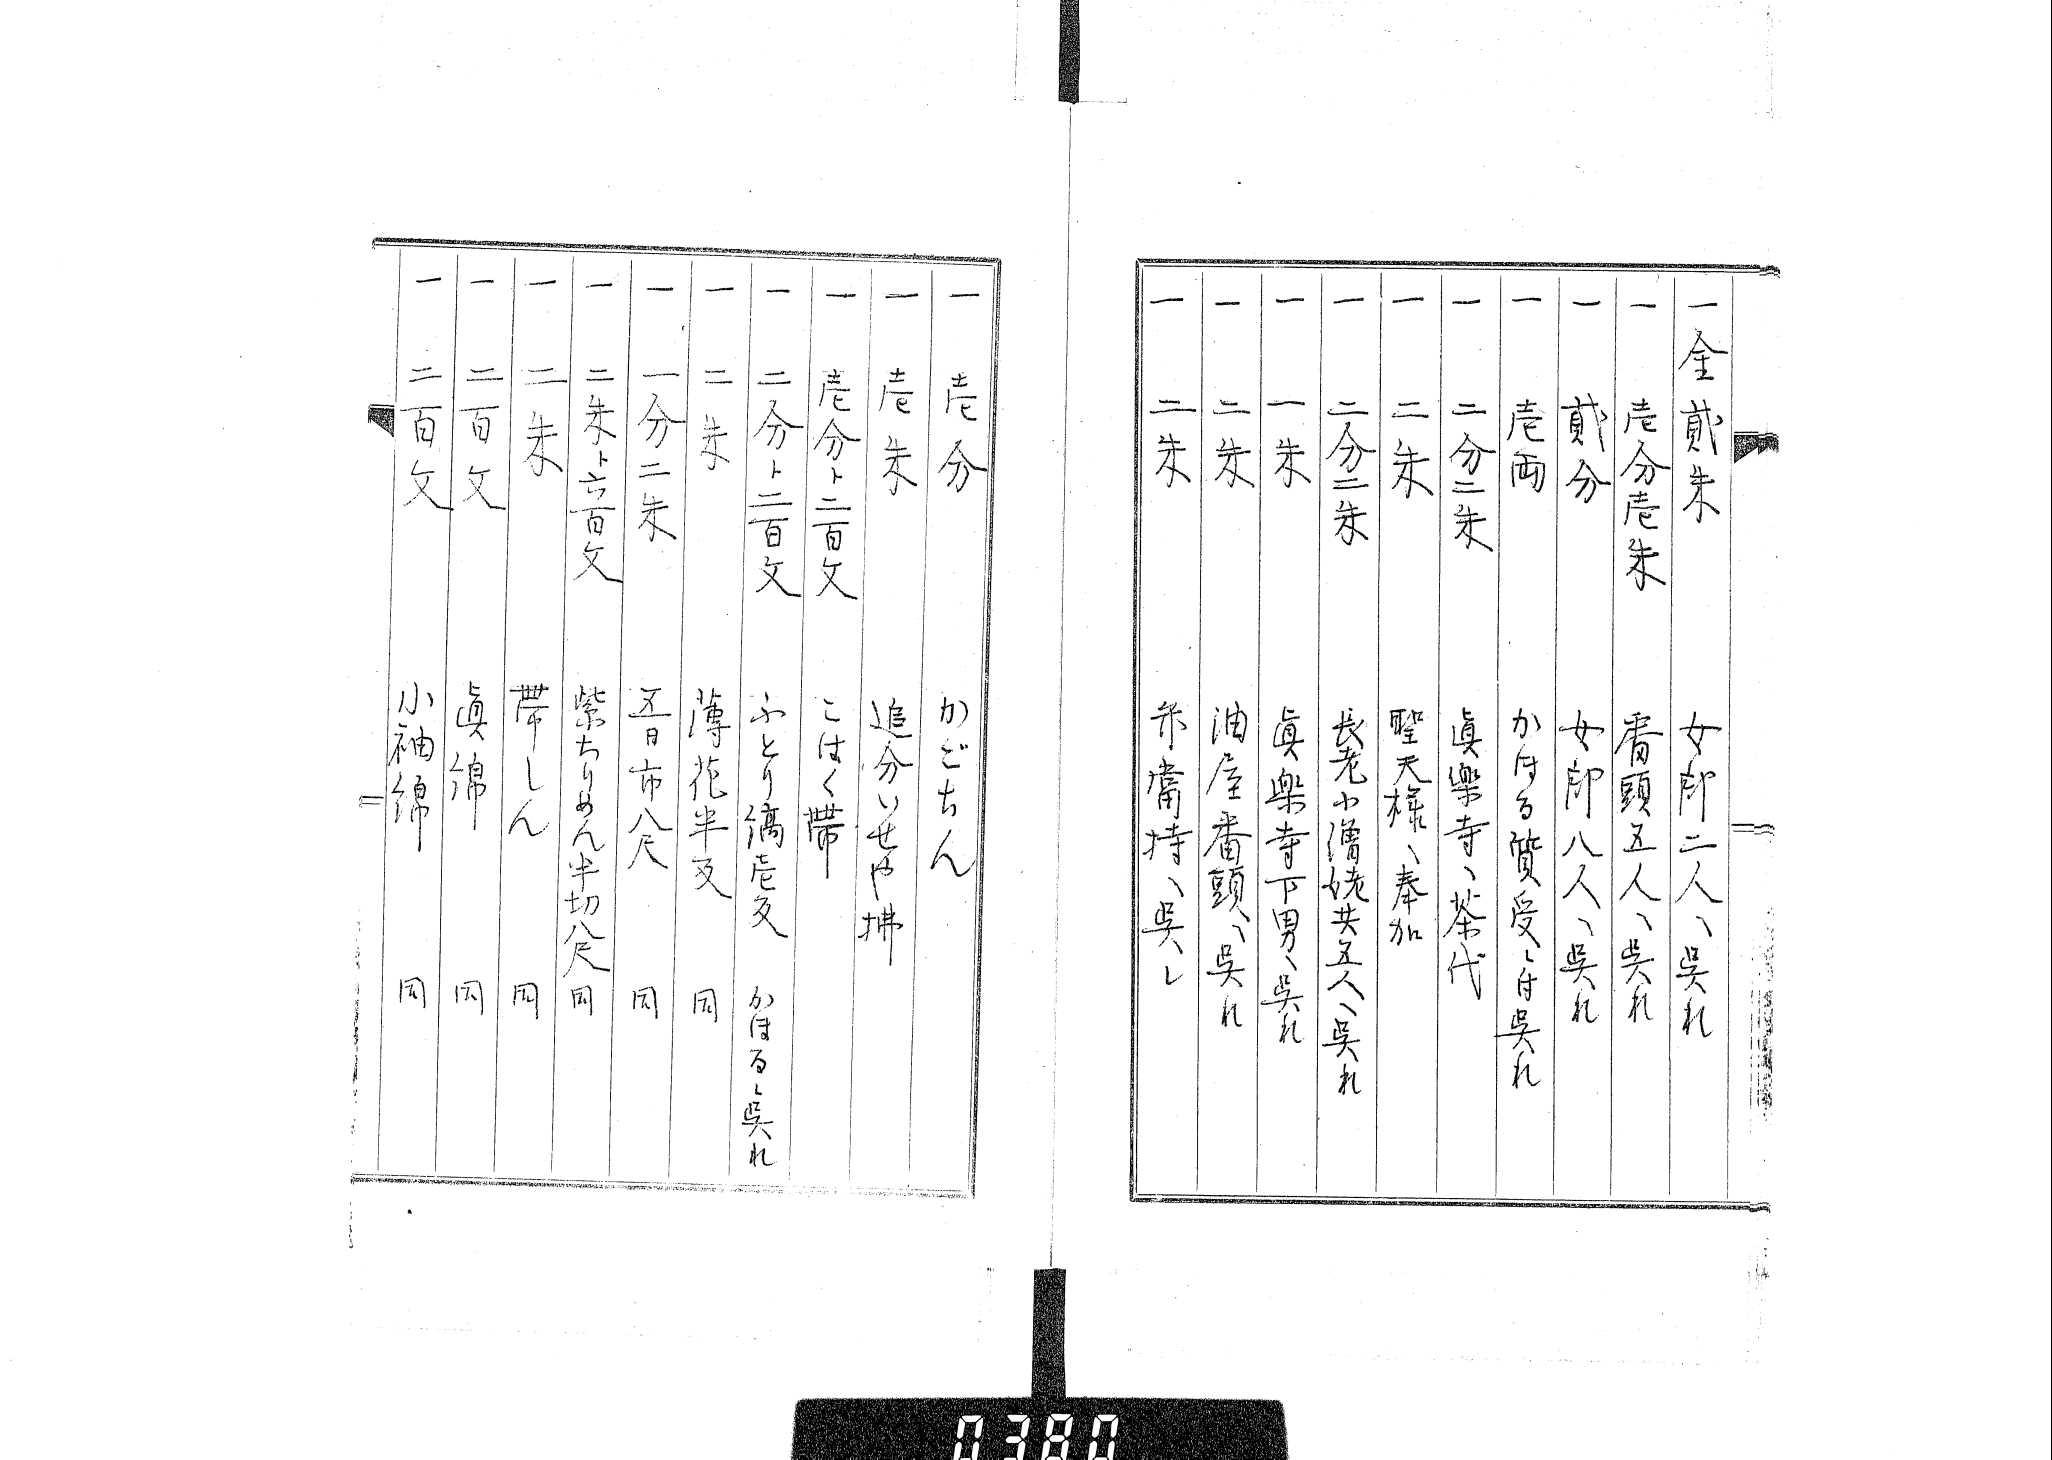 一金貳朱 女郎二人ヘ呉れ
一 壱分壱朱 番頭五人ヘ呉れ
一 貳分 女郎八人ヘ呉れ
一 壱両 かほる質受ヽ付呉れ
一 二分二朱 眞樂寺ヘ茶代
一 二朱 聖天様ヘ奉加
一 二分二朱 長老小僧姥共五人ヘ呉れ
一 一朱 眞樂寺下男ヘ呉れ
一 二朱 油屋番頭ヘ呉れ
一 二朱 弁當持ヘ呉レ
一 壱分 かごちん
一 壱朱 追分いせや拂
一 壱分ト二百文 こはく帶
一 二分ト二百文 ふとり縞壱反 かほるヘ呉れ
一 二朱 薄花半反 同
一 一分二朱 五日市八尺 同
一 二朱ト六百文 紫ちりめん半切八尺 同
一 二朱 帶しん 同
一 二百文 眞綿 同
一 二百文 小袖綿 同
0380